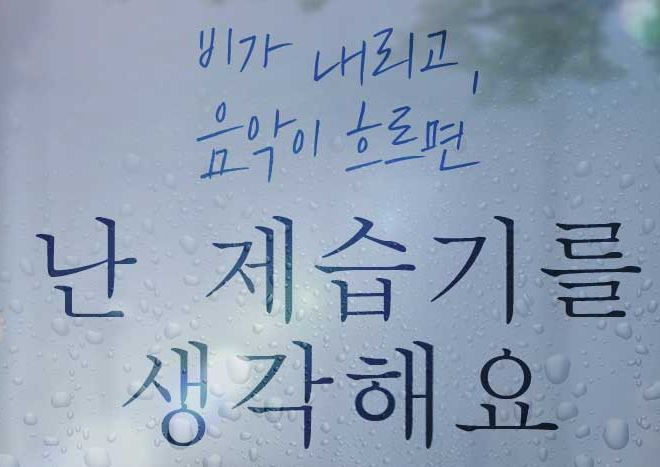 비가 내리고,
음악이 흐르면
난 제습기를
생각해요